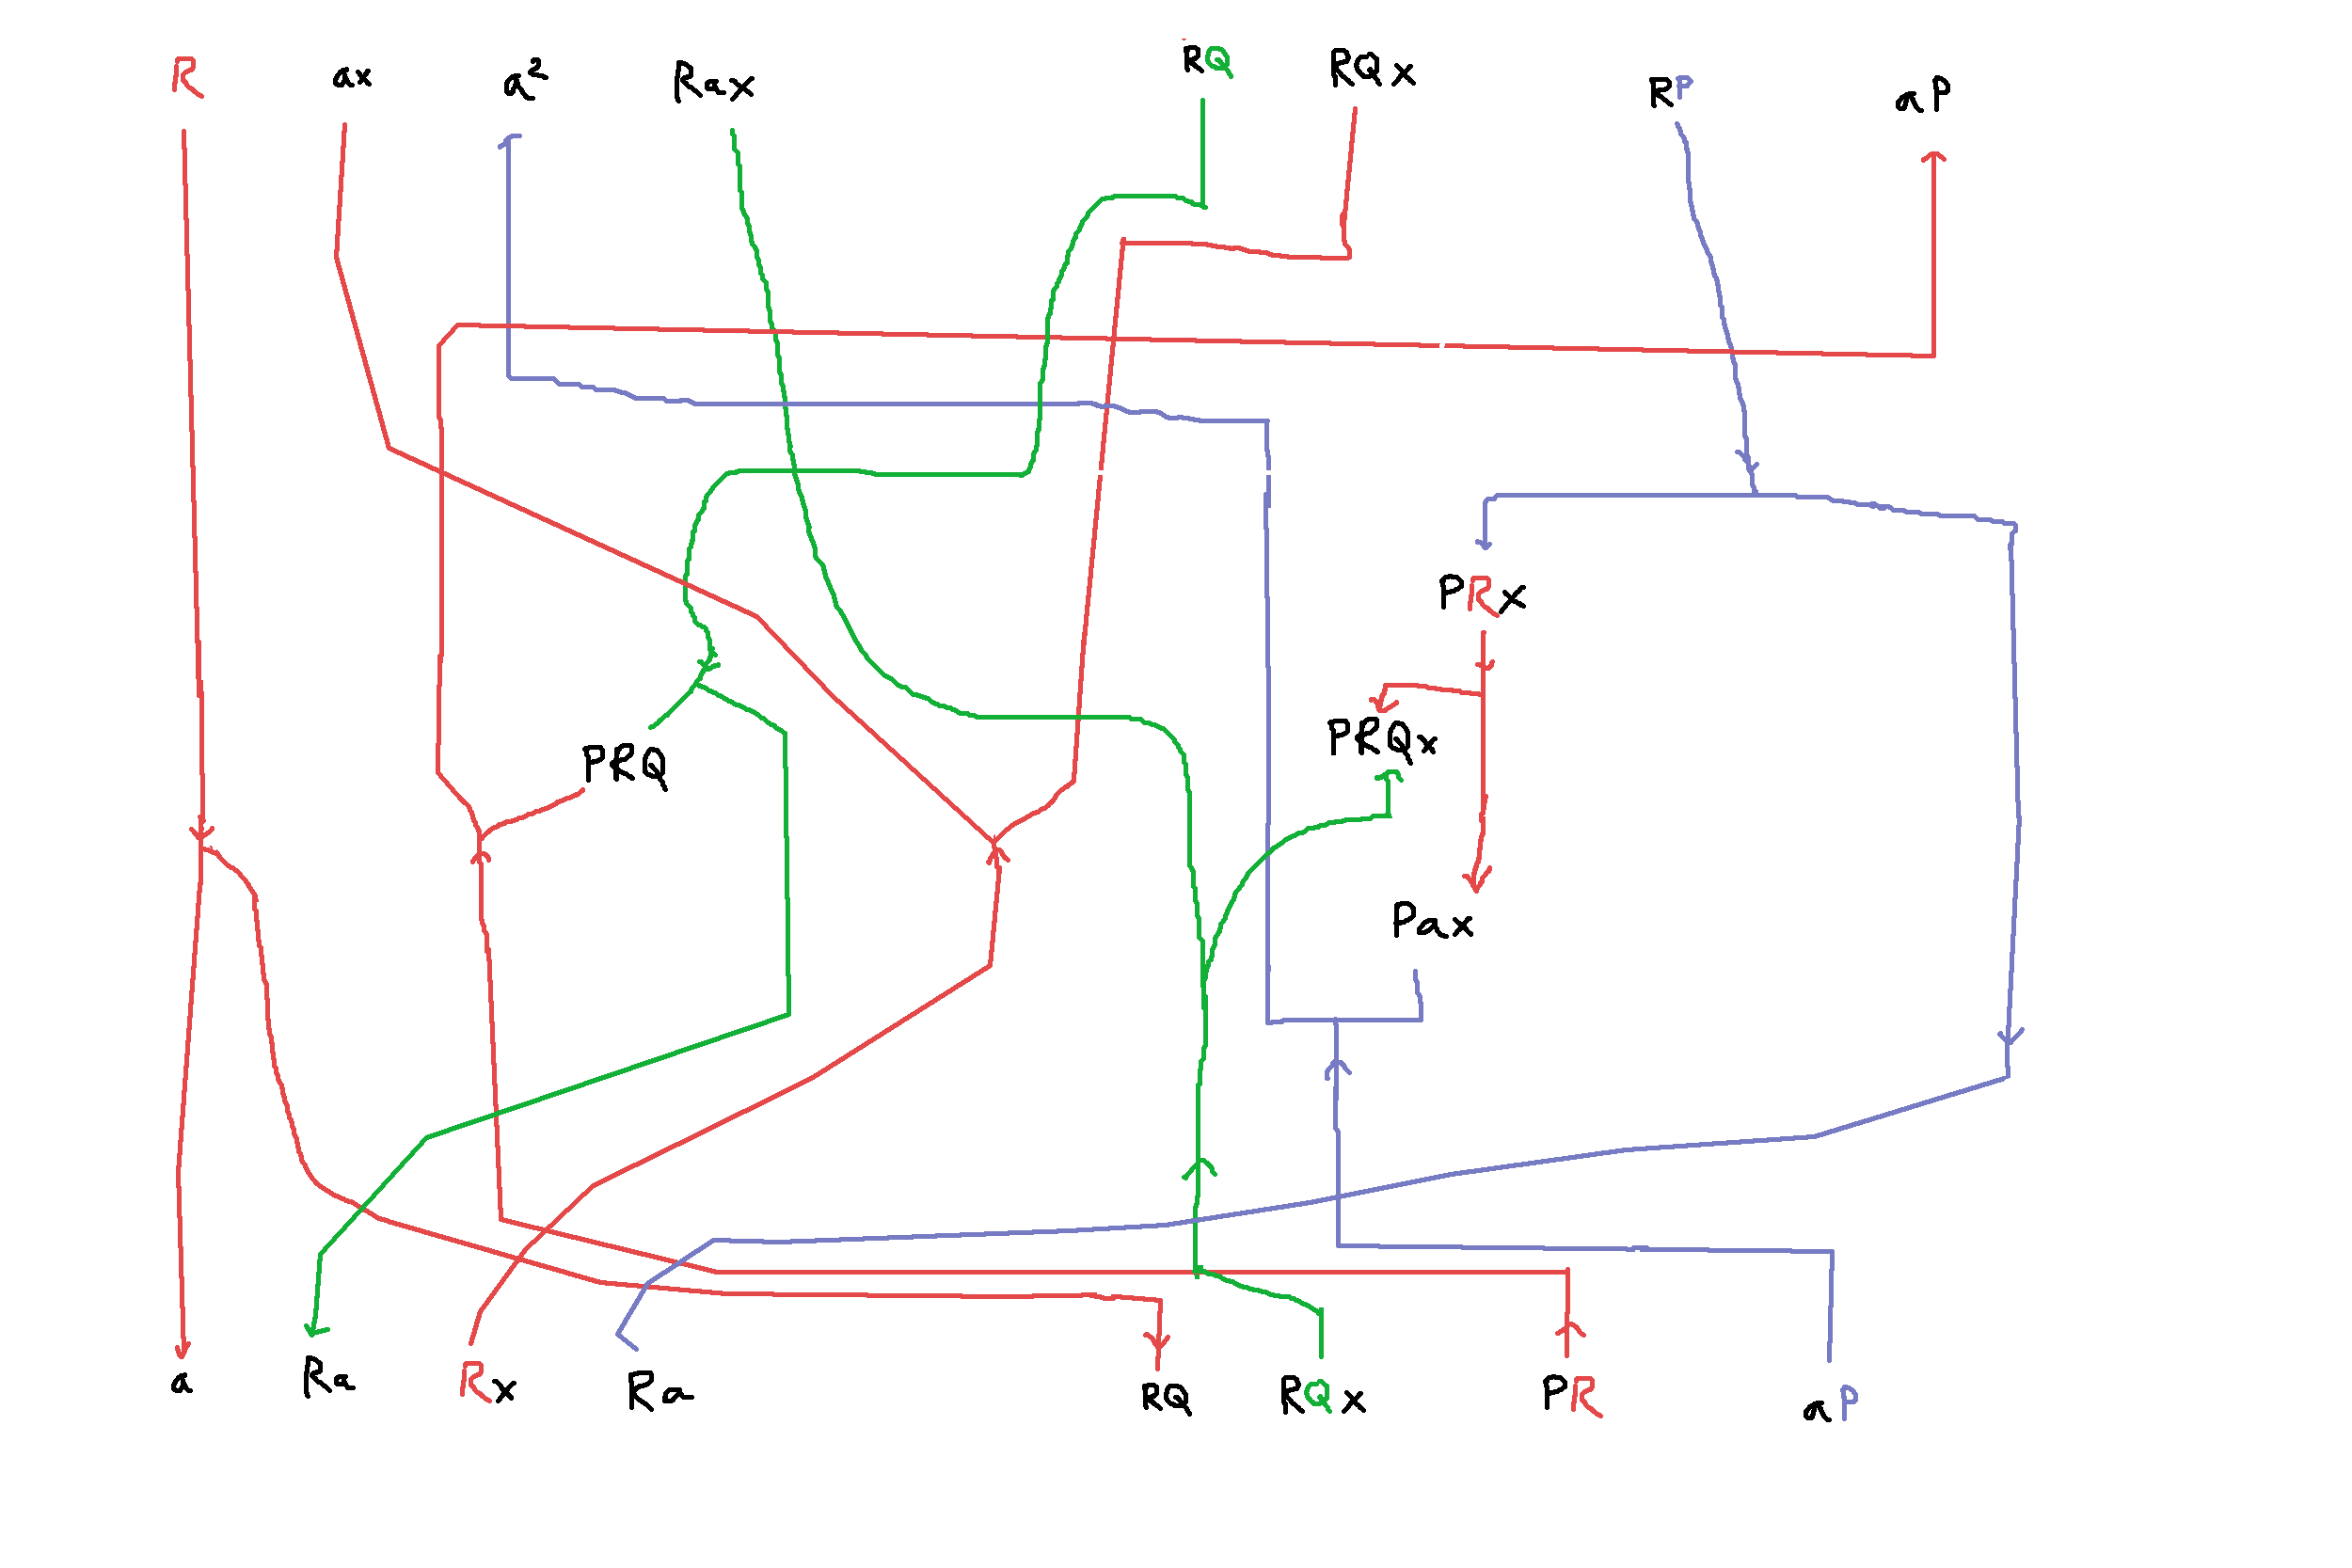 R ax a² Rax RQ RQx RP aP
PRx
PRQ PRQx
Pax
a Ra Rx Ra RQ RQx PR aP